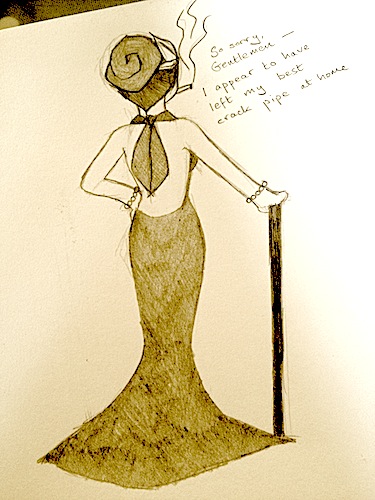 So sorry,
Gentlemen —
I appear to have
left my best
crack pipe at home